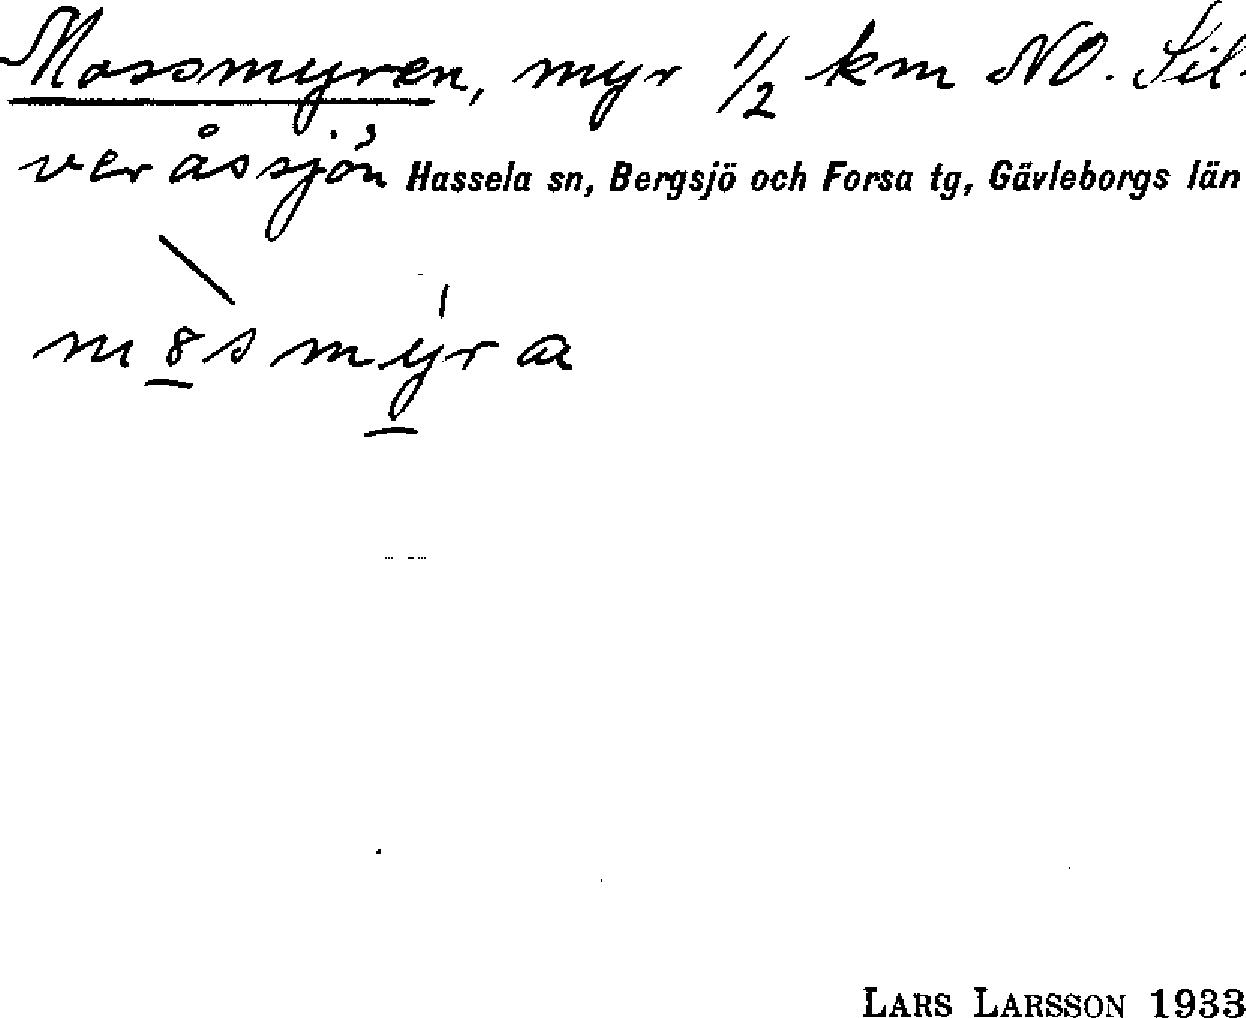 Mossmyren, myr 1/2 km NO. Sil-
veråssjön Hassela sn, Bergsjö och Forsa tg, Gävleborgs län
m8smyra
LARS LARSSON 1933